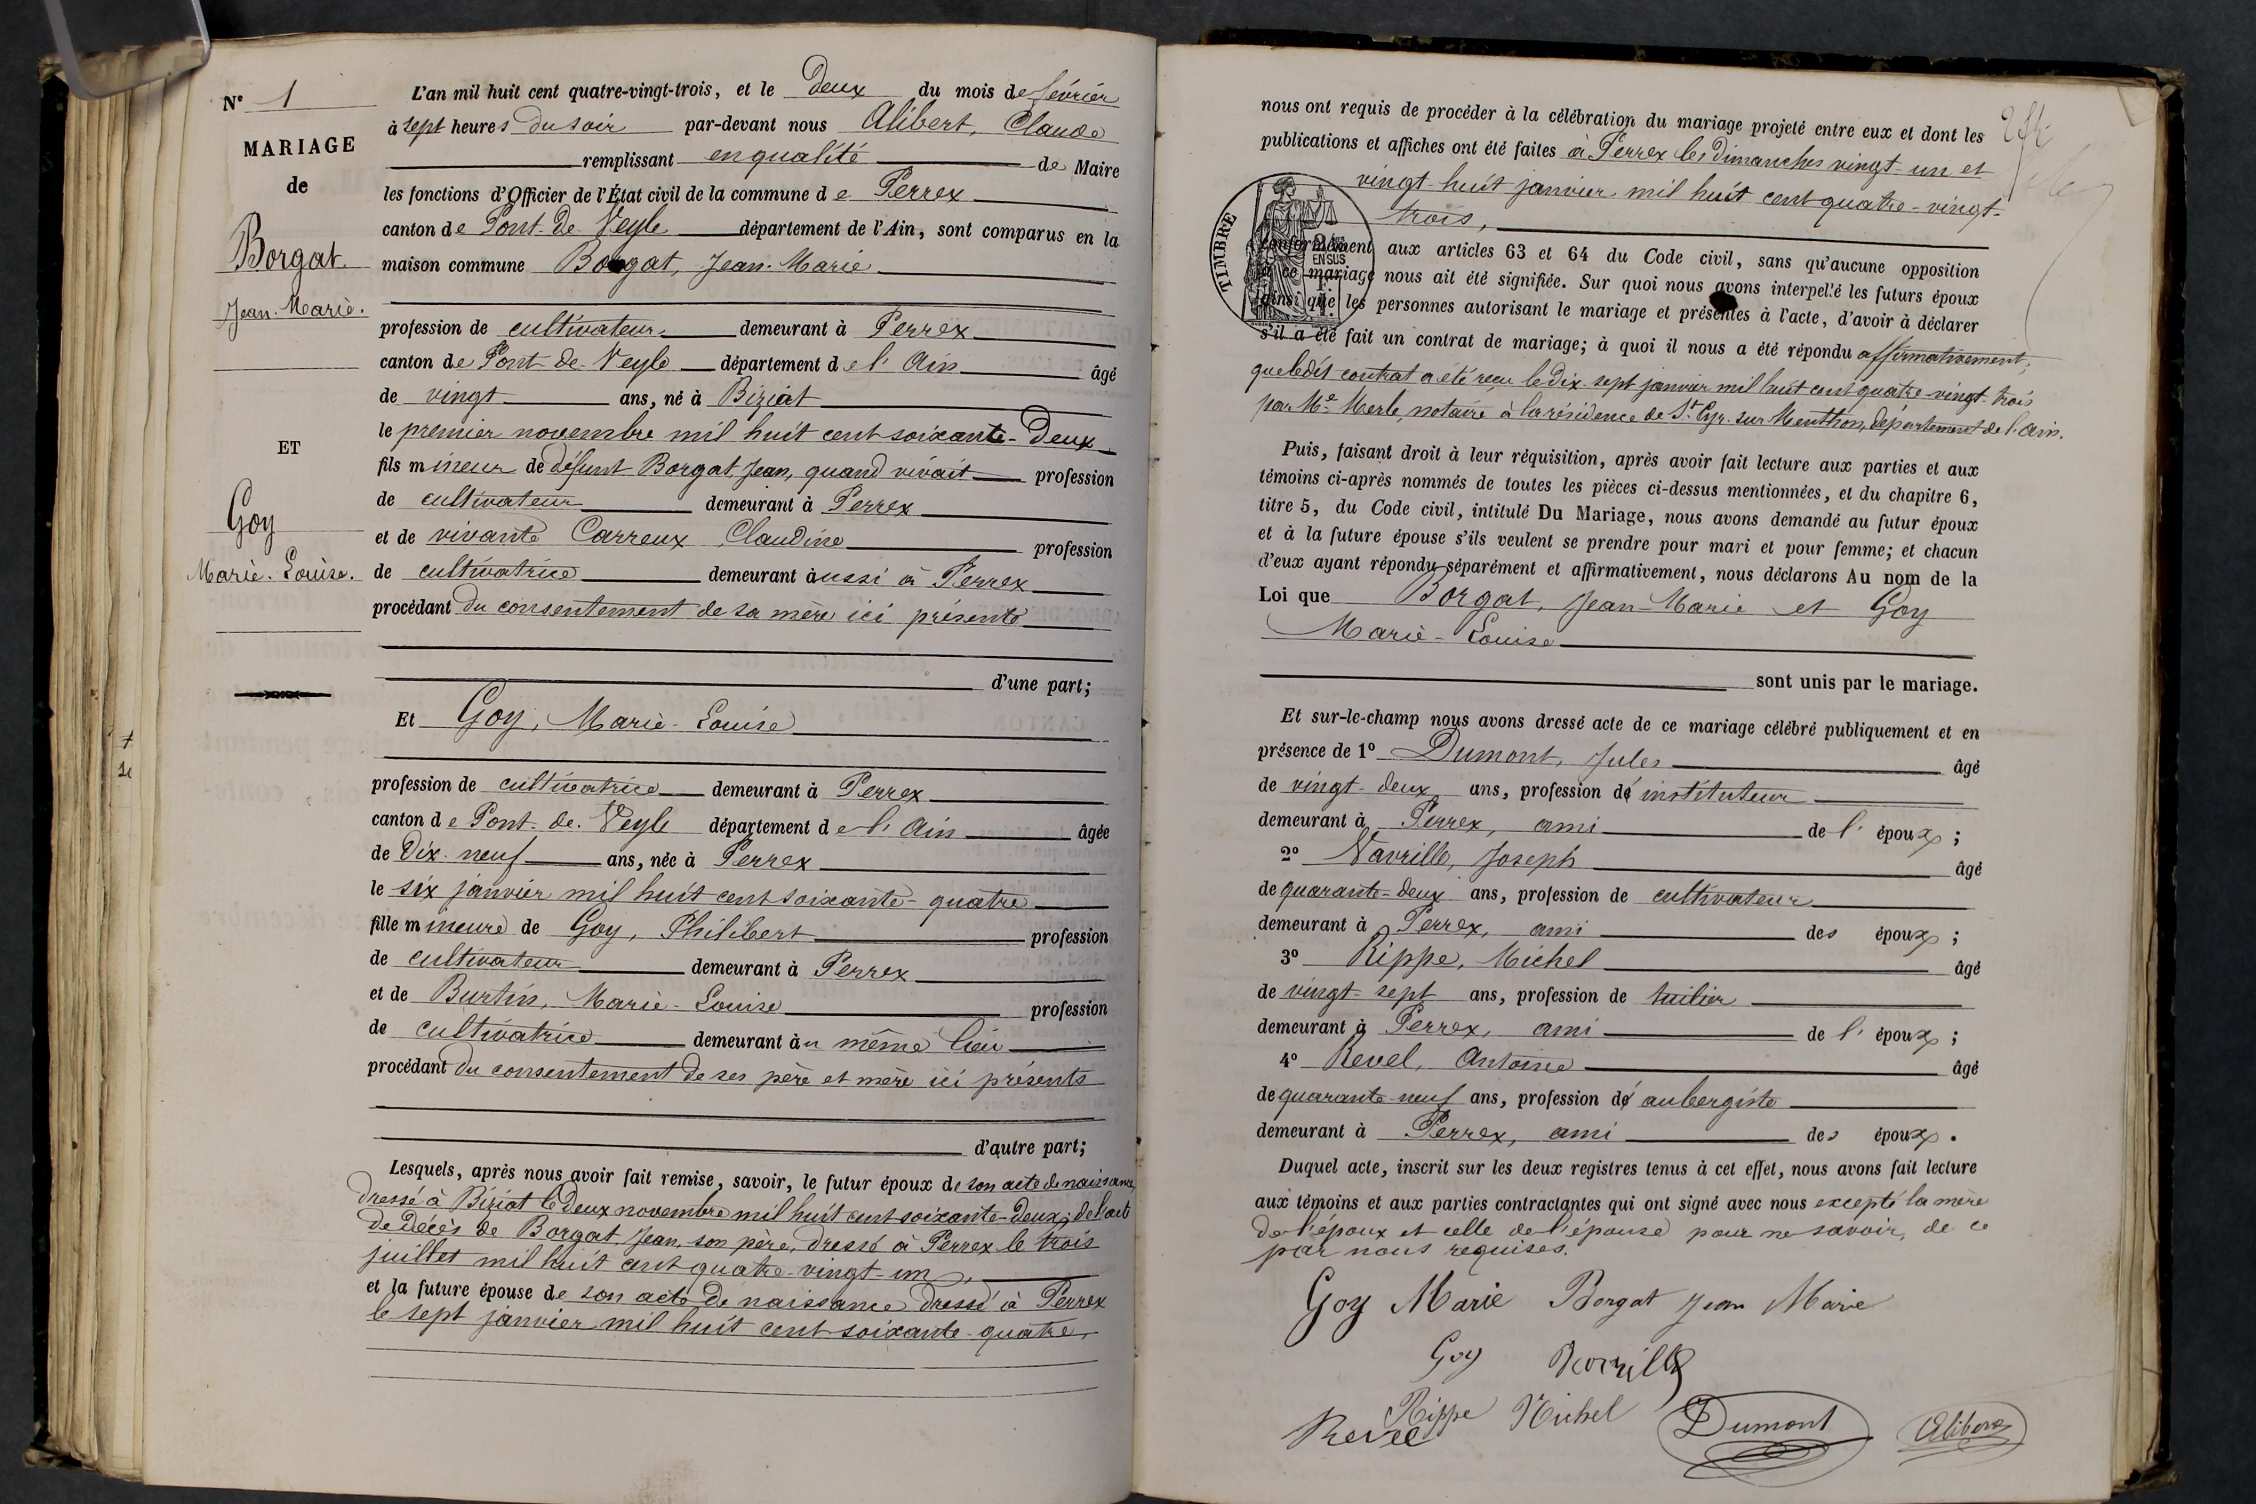 N° 1
MARIAGE
de
Borgat
Jean-Marie.
ET
Goy
Marie-Louise.
L'an mil huit cent quatre-vingt-trois, et le Deux du mois de février
à sept heures du soir par-devant nous Alibert, Claude
remplissant en qualité de Maire
les fonctions d'Officier de l'État civil de la commune de Perrex
canton de Pont-de-Veyle département de l'Ain, sont comparus en la
maison commune Borgat, Jean-Marie
profession de cultivateur demeurant à Perrex
canton de Pont-de-Veyle département de l'Ain âgé
de vingt ans, né à Biziat
le premier novembre mil huit cent soixante-Deux
fils mineur de défunt Borgat Jean, quand vivait profession
de cultivateur demeurant à Perrex
et de vivante Carreux Claudine profession
de cultivatrice demeurant aussi à Perrex
procédant du consentement de sa mère ici présente
d'une part;
Et Goy, Marie-Louise
profession de cultivatrice demeurant à Perrex
canton de Pont-de-Veyle département de l'Ain âgée
de Dix-neuf ans, née à Perrex
le six janvier mil huit cent soixante-quatre
fille mineure de Goy, Philibert profession
de cultivateur demeurant à Perrex
et de Burtin, Marie-Louise profession
de cultivatrice demeurant au même lieu
procédant du consentement de ses père et mère ici présents
d'autre part;
Lesquels, après nous avoir fait remise, savoir, le futur époux de son acte de naissance
dressé à Biziat le Deux novembre mil huit cent soixante-Deux; de l'acte
de décès de Borgat Jean, son père, dressé à Perrex le trois
juillet mil huit cent quatre-vingt-un,
et la future épouse de son acte de naissance dressé à Perrex
le sept janvier mil huit cent soixante-quatre,
nous ont requis de procéder à la célébration du mariage projeté entre eux et dont les
publications et affiches ont été faites à Perrex les dimanches vingt-un et
vingt-huit janvier mil huit cent quatre-vingt-
trois,
TIMBRE
EN SUS
conformément aux articles 63 et 64 du Code civil, sans qu'aucune opposition
à ce mariage nous ait été signifiée. Sur quoi nous avons interpellé les futurs époux
ainsi que les personnes autorisant le mariage et présentes à l'acte, d'avoir à déclarer
s'il a été fait un contrat de mariage; à quoi il nous a été répondu affirmativement,
que ledit contrat a été reçu le dix-sept janvier mil huit cent quatre-vingt-trois
par Me Merle, notaire à la résidence de St Cyr-sur-Menthon, département de l'Ain.
Puis, faisant droit à leur réquisition, après avoir fait lecture aux parties et aux
témoins ci-après nommés de toutes les pièces ci-dessus mentionnées, et du chapitre 6,
titre 5, du Code civil, intitulé Du Mariage, nous avons demandé au futur époux
et à la future épouse s'ils veulent se prendre pour mari et pour femme; et chacun
d'eux ayant répondu séparément et affirmativement, nous déclarons Au nom de la
Loi que Borgat, Jean-Marie et Goy
Marie-Louise
sont unis par le mariage.
Et sur-le-champ nous avons dressé acte de ce mariage célébré publiquement et en
présence de 1° Dumont, Jules âgé
de vingt-deux ans, profession d'instituteur
demeurant à Perrex, ami de l'époux;
2° Navrille, Joseph âgé
de quarante-deux ans, profession de cultivateur
demeurant à Perrex, ami des époux;
3° Rippe, Michel âgé
de vingt-sept ans, profession de tuilier
demeurant à Perrex, ami de l'époux;
4° Revel, Antoine âgé
de quarante-neuf ans, profession d'aubergiste
demeurant à Perrex, ami des époux.
Duquel acte, inscrit sur les deux registres tenus à cet effet, nous avons fait lecture
aux témoins et aux parties contractantes qui ont signé avec nous excepté la mère
de l'époux et celle de l'épouse pour ne savoir, de ce
par nous requises.
Goy Marie Borgat Jean Marie
Goy Navrille
Rippe Michel
Revel Dumont Alibert